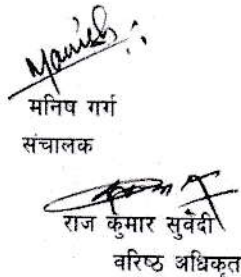 Manish
मनिष गर्ग
संचालक
राज कुमार सुवेदी
वरिष्ठ अधिकृत